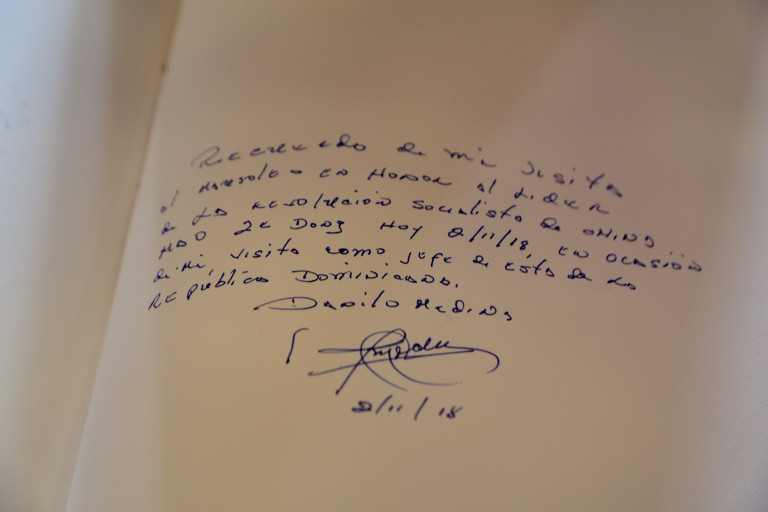 Recuerdo de mi visita
al Mausoleo en Honor al Lider
de La Revolución Socialista de China
Mao Ze Dong Hoy 2/11/18, en ocasión
de mi visita como Jefe de Estado de La
República Dominicana.
Danilo Medina
2/11/18